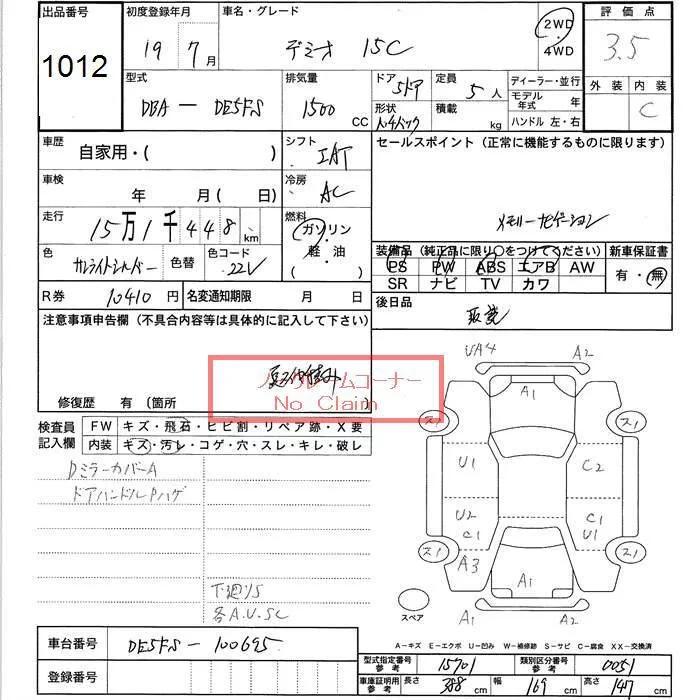 出品番号 初度登録年月 車名・グレード 評価点
1012 19年 7月 デミオ 15C 2WD・4WD 3.5
型式 排気量 ドア 5ドア 定員 5人 ディーラー・並行 外装 内装
DBA-DE5FS 1500 CC 形状 積載 kg モデル年式 年 C
ハンドル 左・右
車歴 自家用・( ) シフト セールスポイント (正常に機能するものに限ります)
車検 年 月 (日) 冷房 AC
メモリーナビゲーション
走行 15万1千448km 燃料 ガソリン・軽油 ( ) 装備品 (純正品に限り○をつけてください) 新車保証書
PS PW ABS エアB AW 有・無
色 色替 色コード 22V SR ナビ TV カワ
R券 10410円 名変通知期限 月 日 後日品
注意事項申告欄 (不具合内容等は具体的に記入して下さい) 取説
ノークレームコーナー
No Claim
修復歴 有 (箇所 )
検査員記入欄 FW キズ・飛石・ヒビ割・リペア跡・X要
内装 キズ・汚レ・コゲ・穴・スレ・キレ・破レ
DミラーカバーA
ドアハンドルPハゲ
下廻りS
各A.U.SC
A2
A1
U1 C2
U2 C1
C1 U1
A3
A1
A1 A2
スペア
A-キズ E-エクボ U-凹み W-補修跡 S-サビ C-腐食 XX-交換済
車台番号 DE5FS-100695
登録番号
型式指定番号 参考 15701 類別区分番号 参考 0051
車庫証明用 参考 長さ 388cm 幅 169cm 高さ 147cm